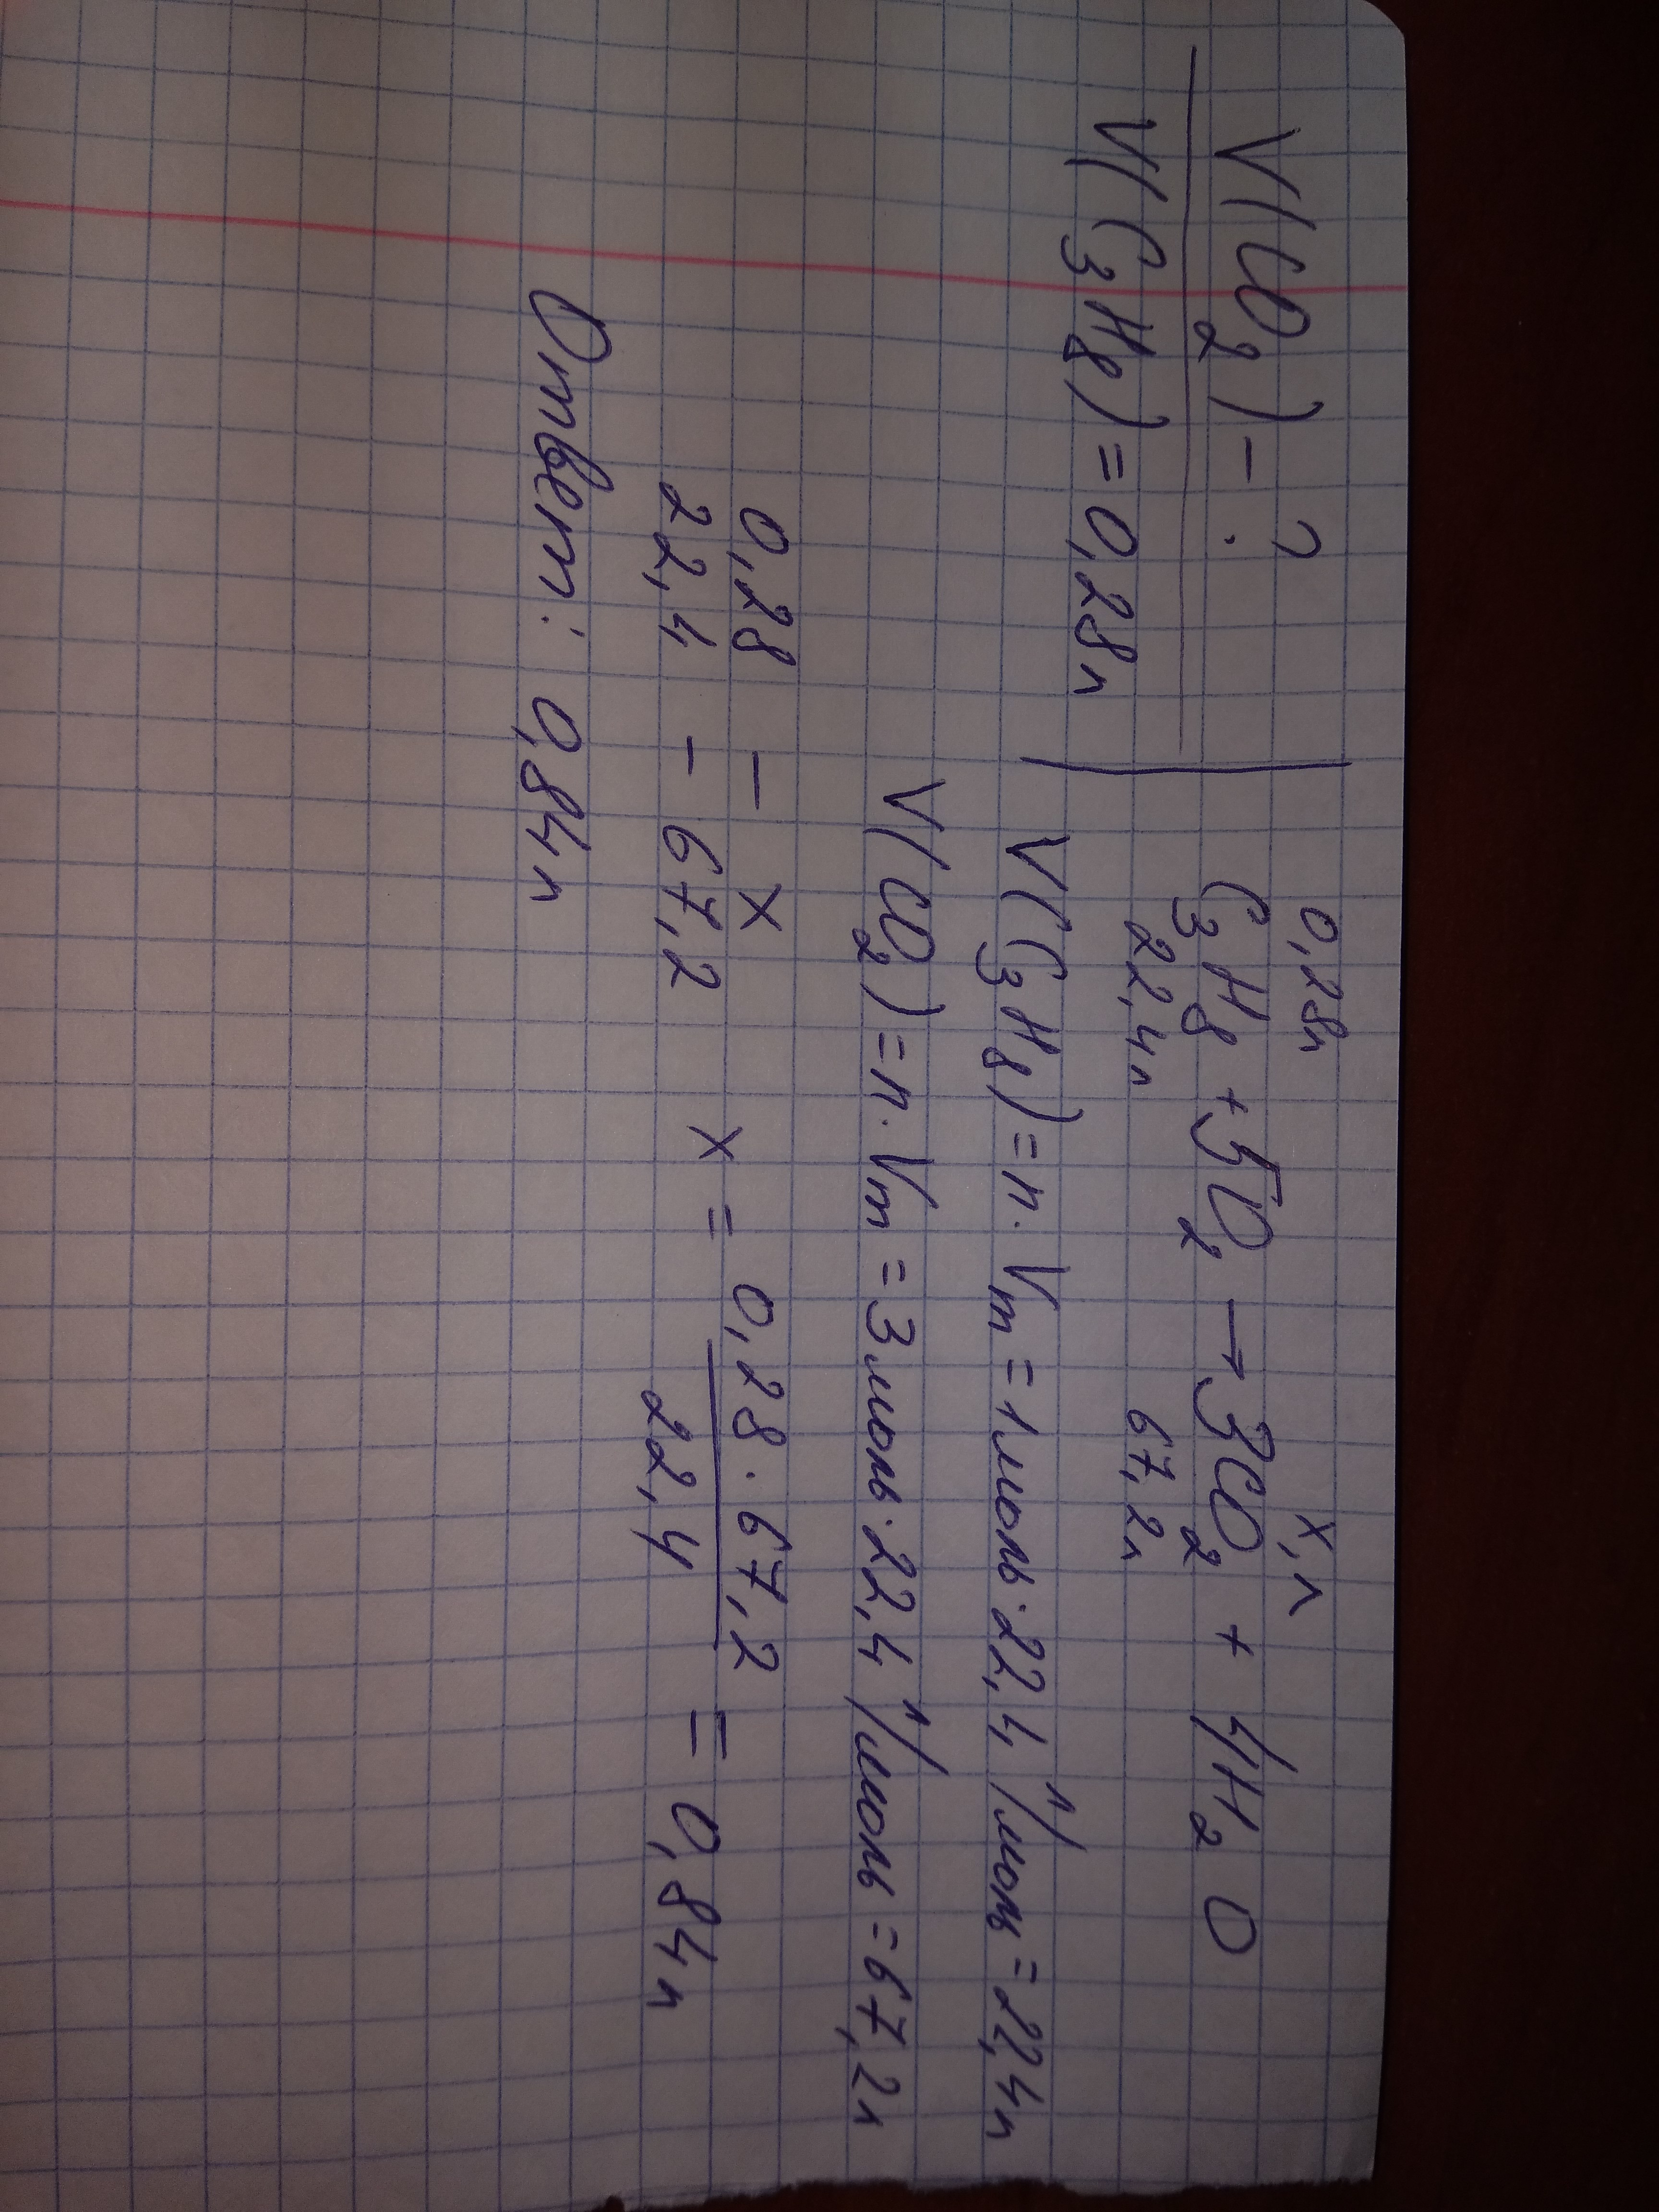 V(CO₂) - ?
V(C₃H₈) = 0,28л
0,28л x, л
C₃H₈ + 5O₂ → 3CO₂ + 4H₂O
22,4л 67,2л
V(C₃H₈) = n · Vm = 1моль · 22,4 л/моль = 22,4л
V(CO₂) = n · Vm = 3моль · 22,4 л/моль = 67,2л
0,28 - x
22,4 - 67,2
x = 0,28 · 67,2 / 22,4 = 0,84л
Ответ: 0,84л